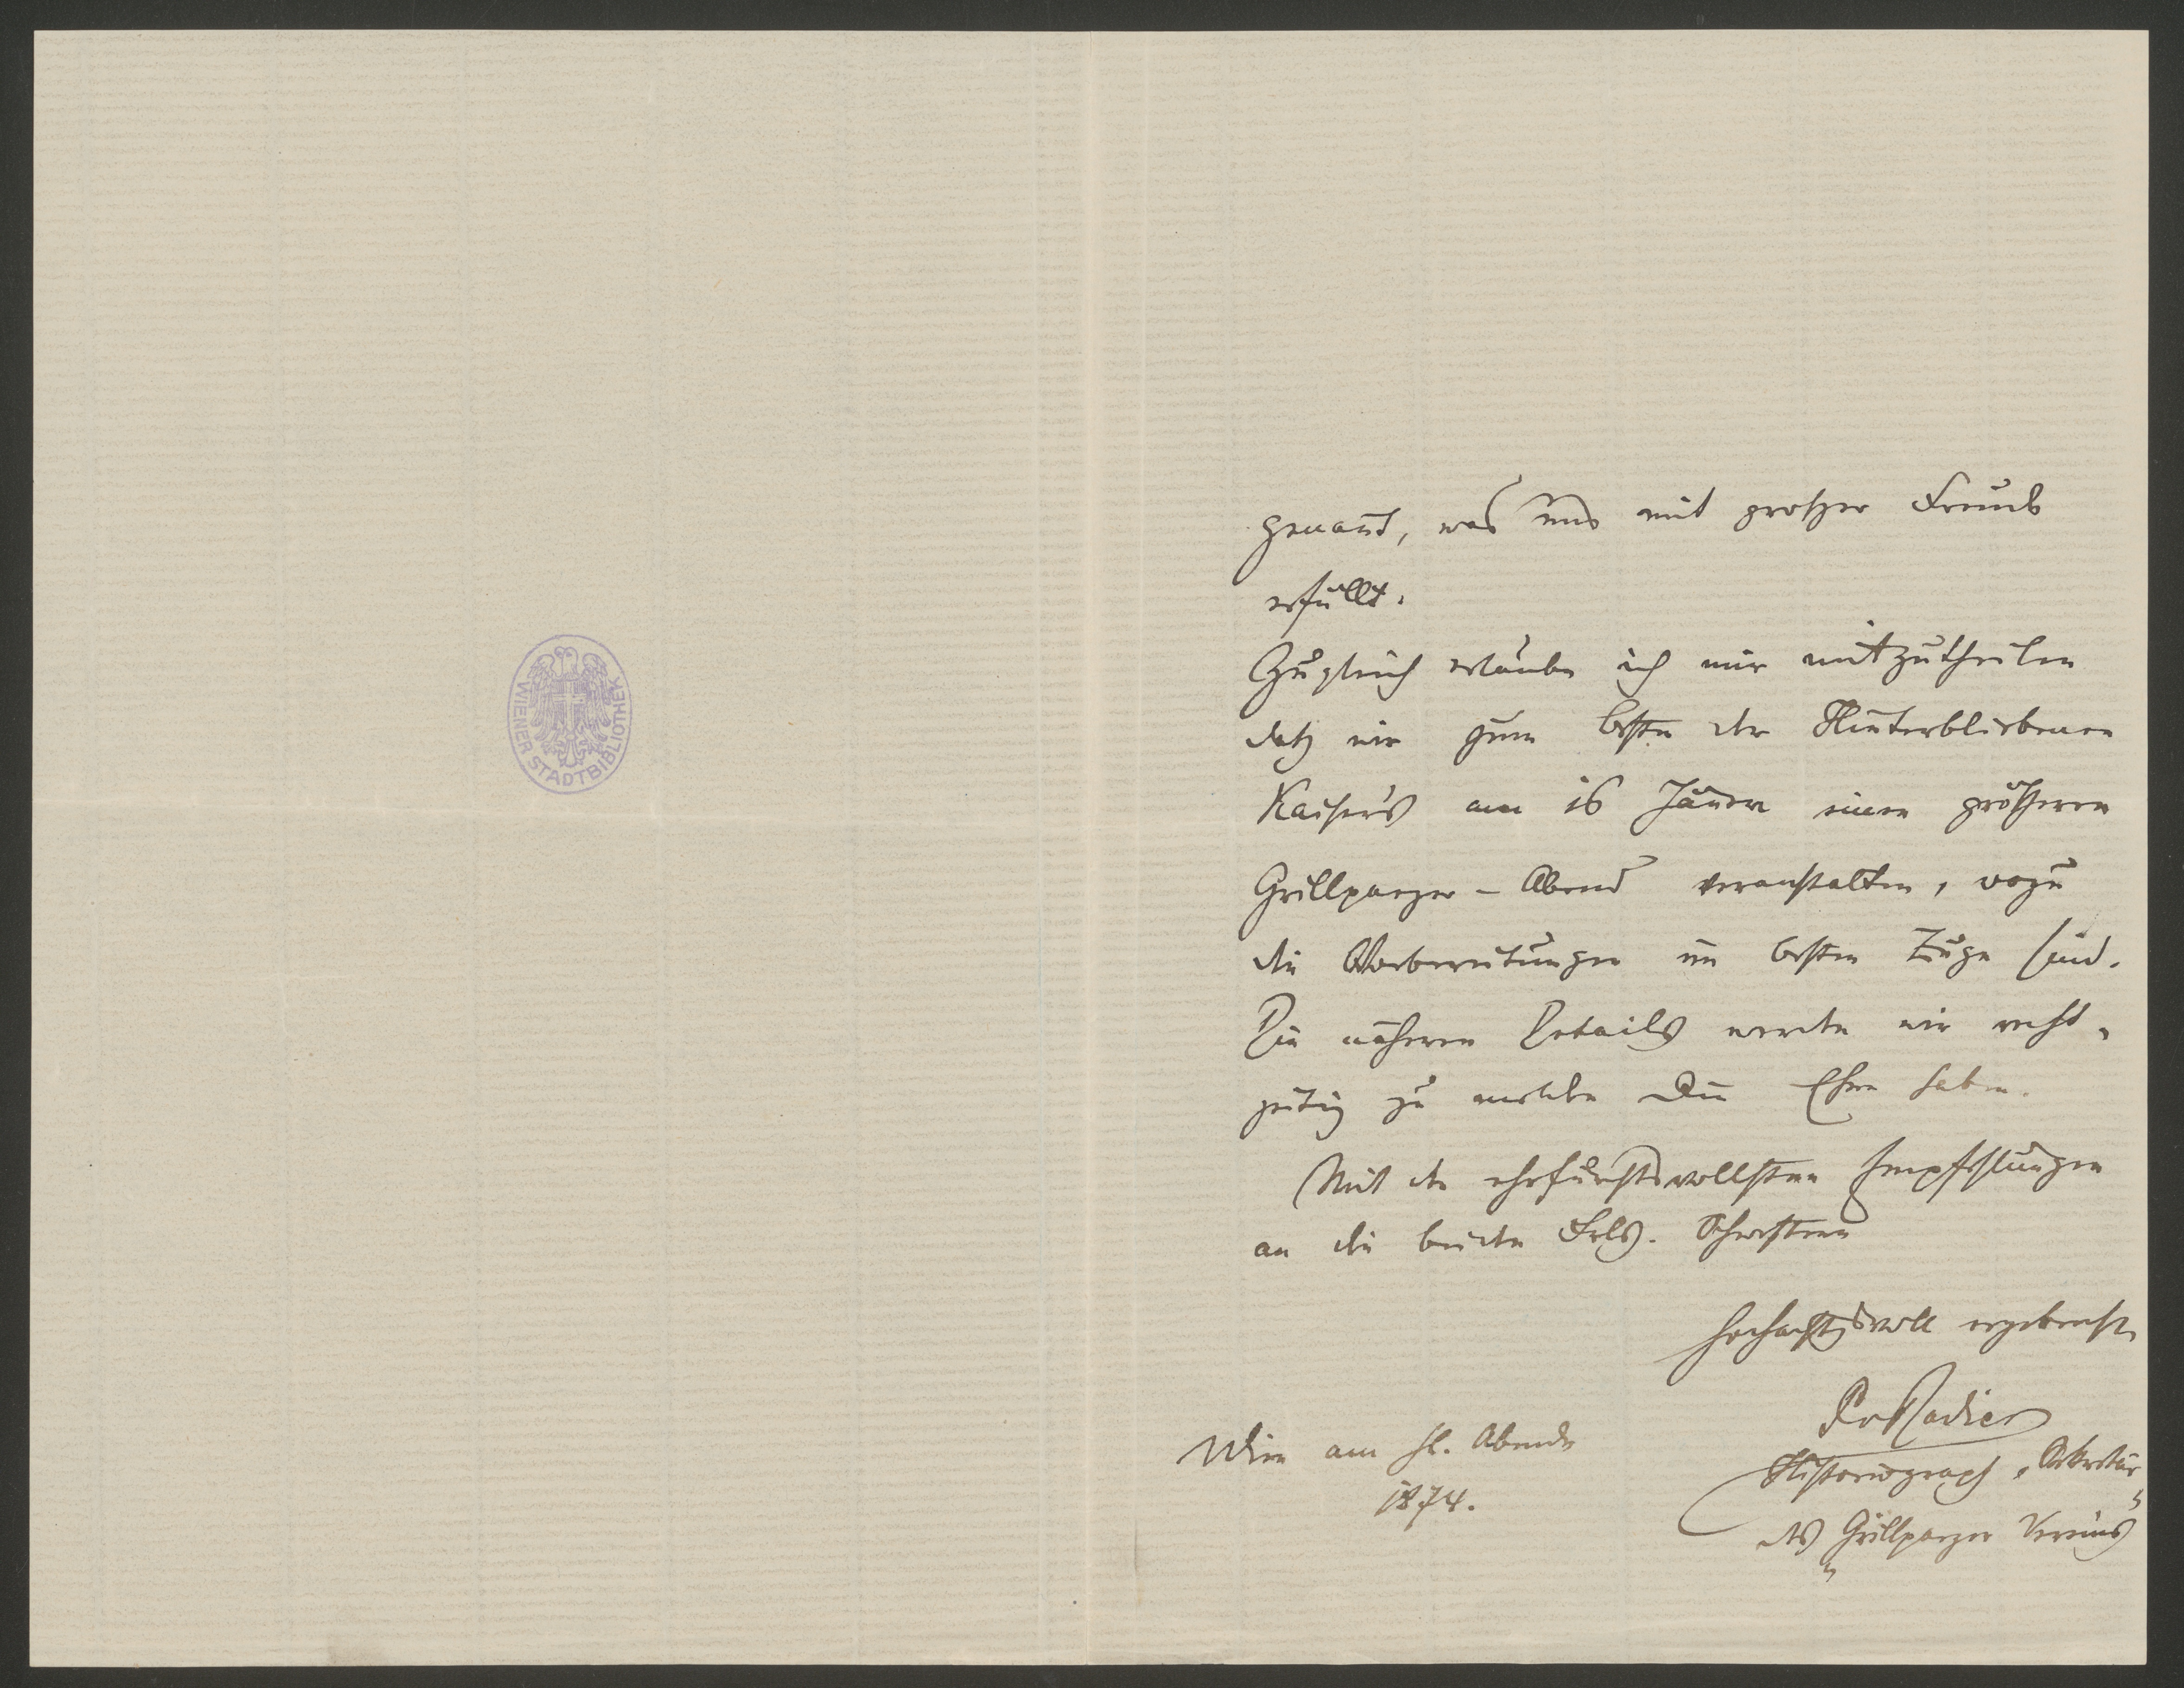 WIENER STADTBIBLIOTHEK
genañt, was uns mit großer Freude
erfüllt.
Zugleich erlaube ich mir mitzutheilen
daß wir zum besten der Hinterbliebenen
Kaiser's am 16 Jäner einen größeren
Grillparzer-Abend veranstalten, wozu
die Vorbereitungen im besten Zuge sind.
Die näheren Details werden wir recht-
zeitig zu melden die Ehre haben.
Mit den ehrfurchtsvollsten Empfehlungen
an die beiden Frls. Schwestern
hochachtgsvoll ergebenst
PvRadics
Wien am hl. Abende
1874.
Historiograph, Sekretär
des "Grillparzer Vereins"